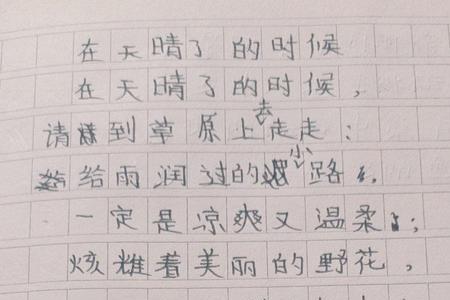 在天晴了的时候
在天晴了的时候，
请到草原上去走走：
给雨润过的小路，
一定是凉爽又温柔；
炫耀着美丽的野花，